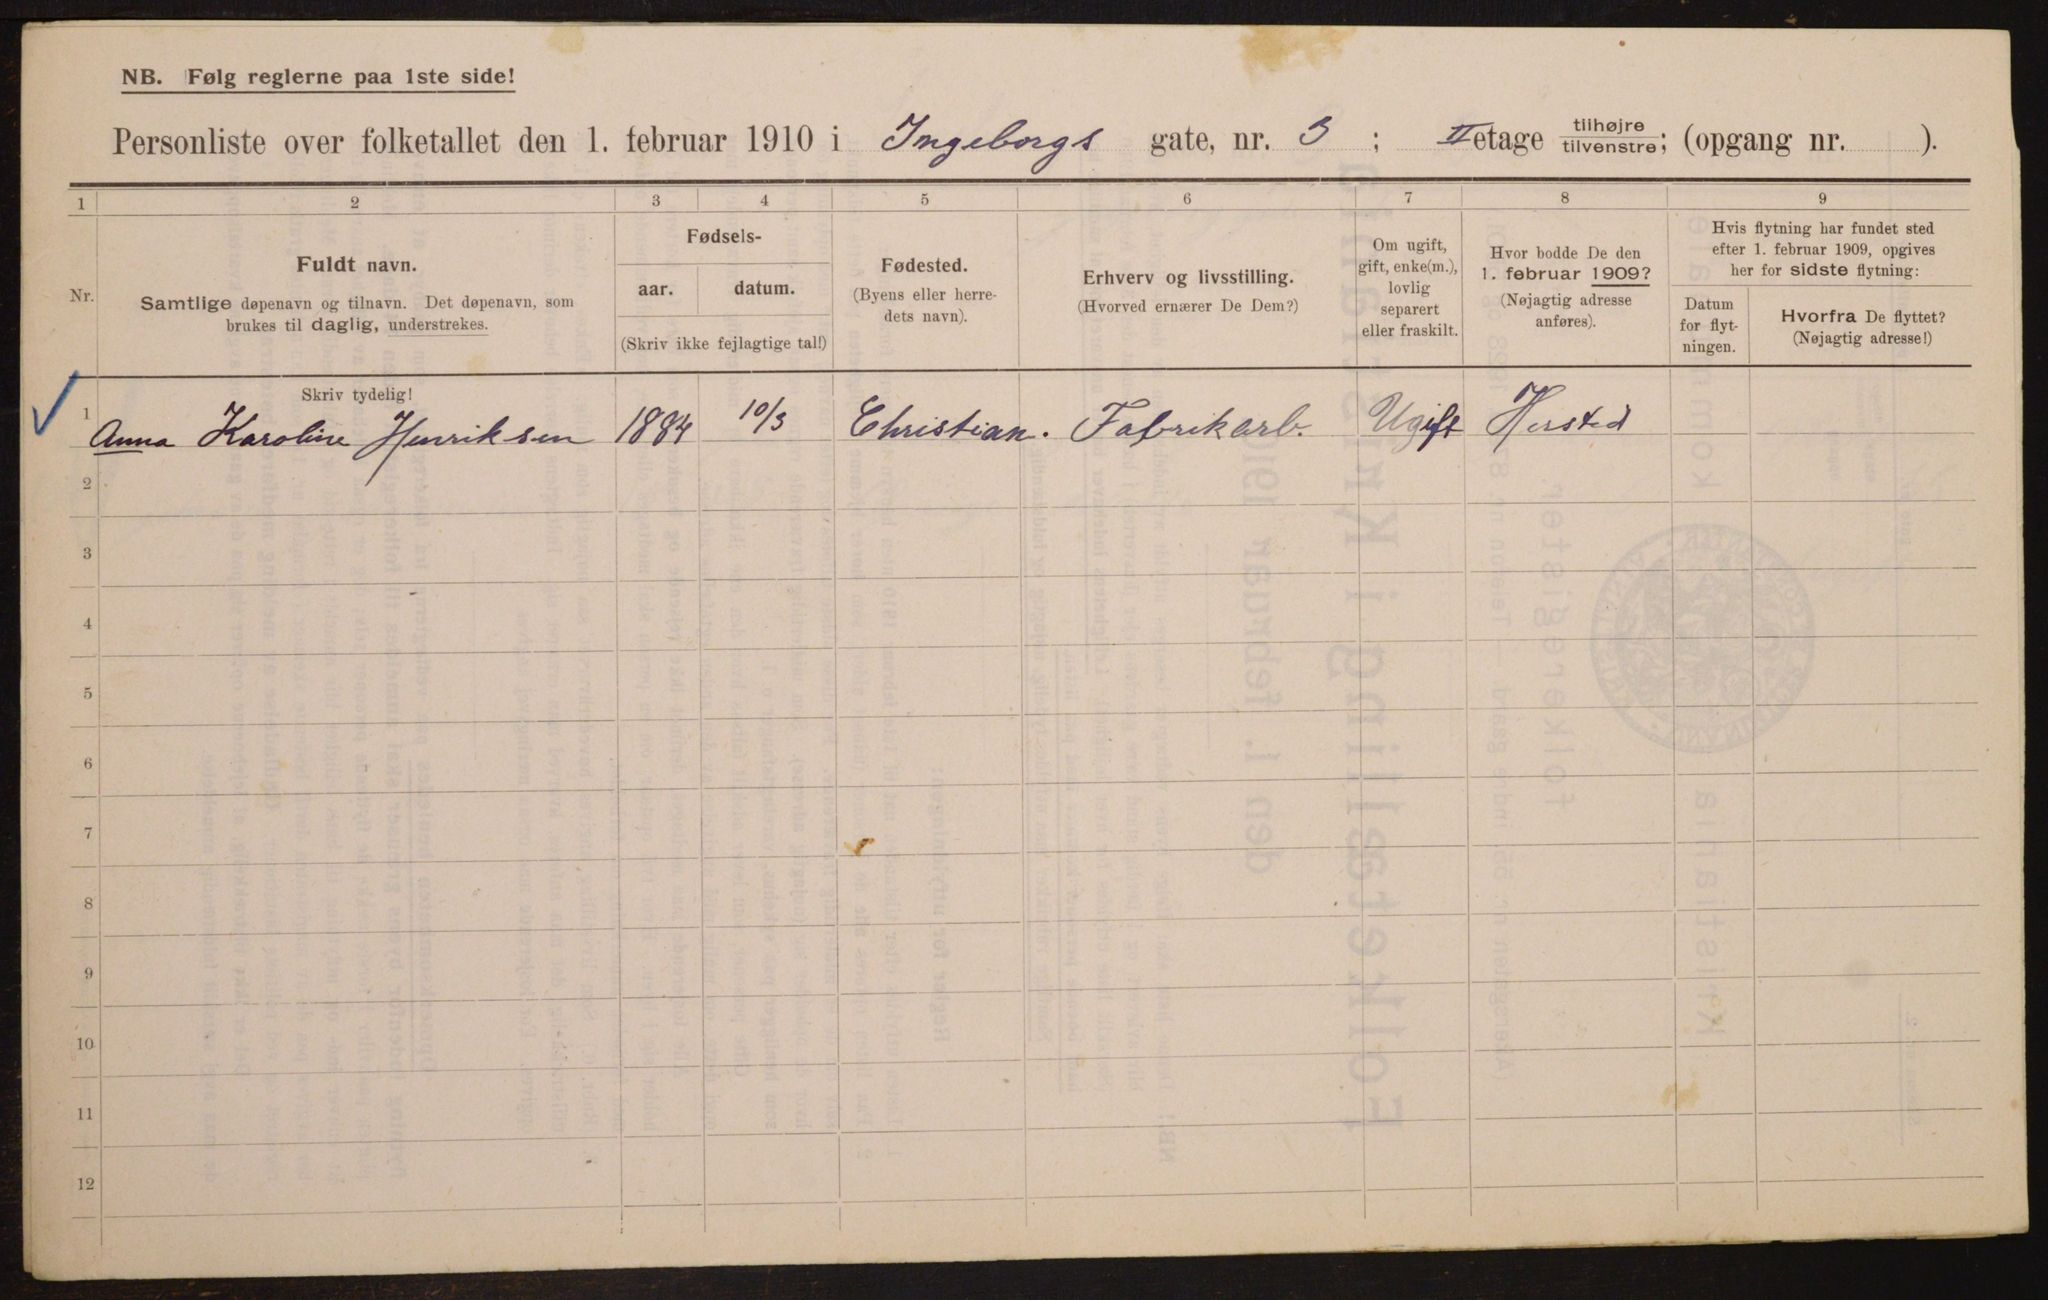 NB. Følg reglerne paa 1ste side!
Personliste over folketallet den 1. februar 1910 i Ingeborgs gate, nr. 3 ; II etage tilhøjre tilvenstre; (opgang nr. ).
1 2 3 4 5 6 7 8 9
Nr.
Fuldt navn.
Samtlige døpenavn og tilnavn. Det døpenavn, som
brukes til daglig, understrekes.
Fødsels-
aar. datum.
(Skriv ikke fejlagtige tal!)
Fødested.
(Byens eller herre-
dets navn).
Erhverv og livsstilling.
(Hvorved ernærer De Dem?)
Om ugift,
gift, enke(m.),
lovlig
separert
eller fraskilt.
Hvor bodde De den
1. februar 1909?
(Nøjagtig adresse
anføres).
Hvis flytning har fundet sted
efter 1. februar 1909, opgives
her for sidste flytning:
Datum
for flyt-
ningen.
Hvorfra De flyttet?
(Nøjagtig adresse!)
Skriv tydelig!
1 Anna Karoline Henriksen 1884 10/3 Christian. Fabrikarb. Ugift
2
3
4
5
6
7
8
9
10
11
12